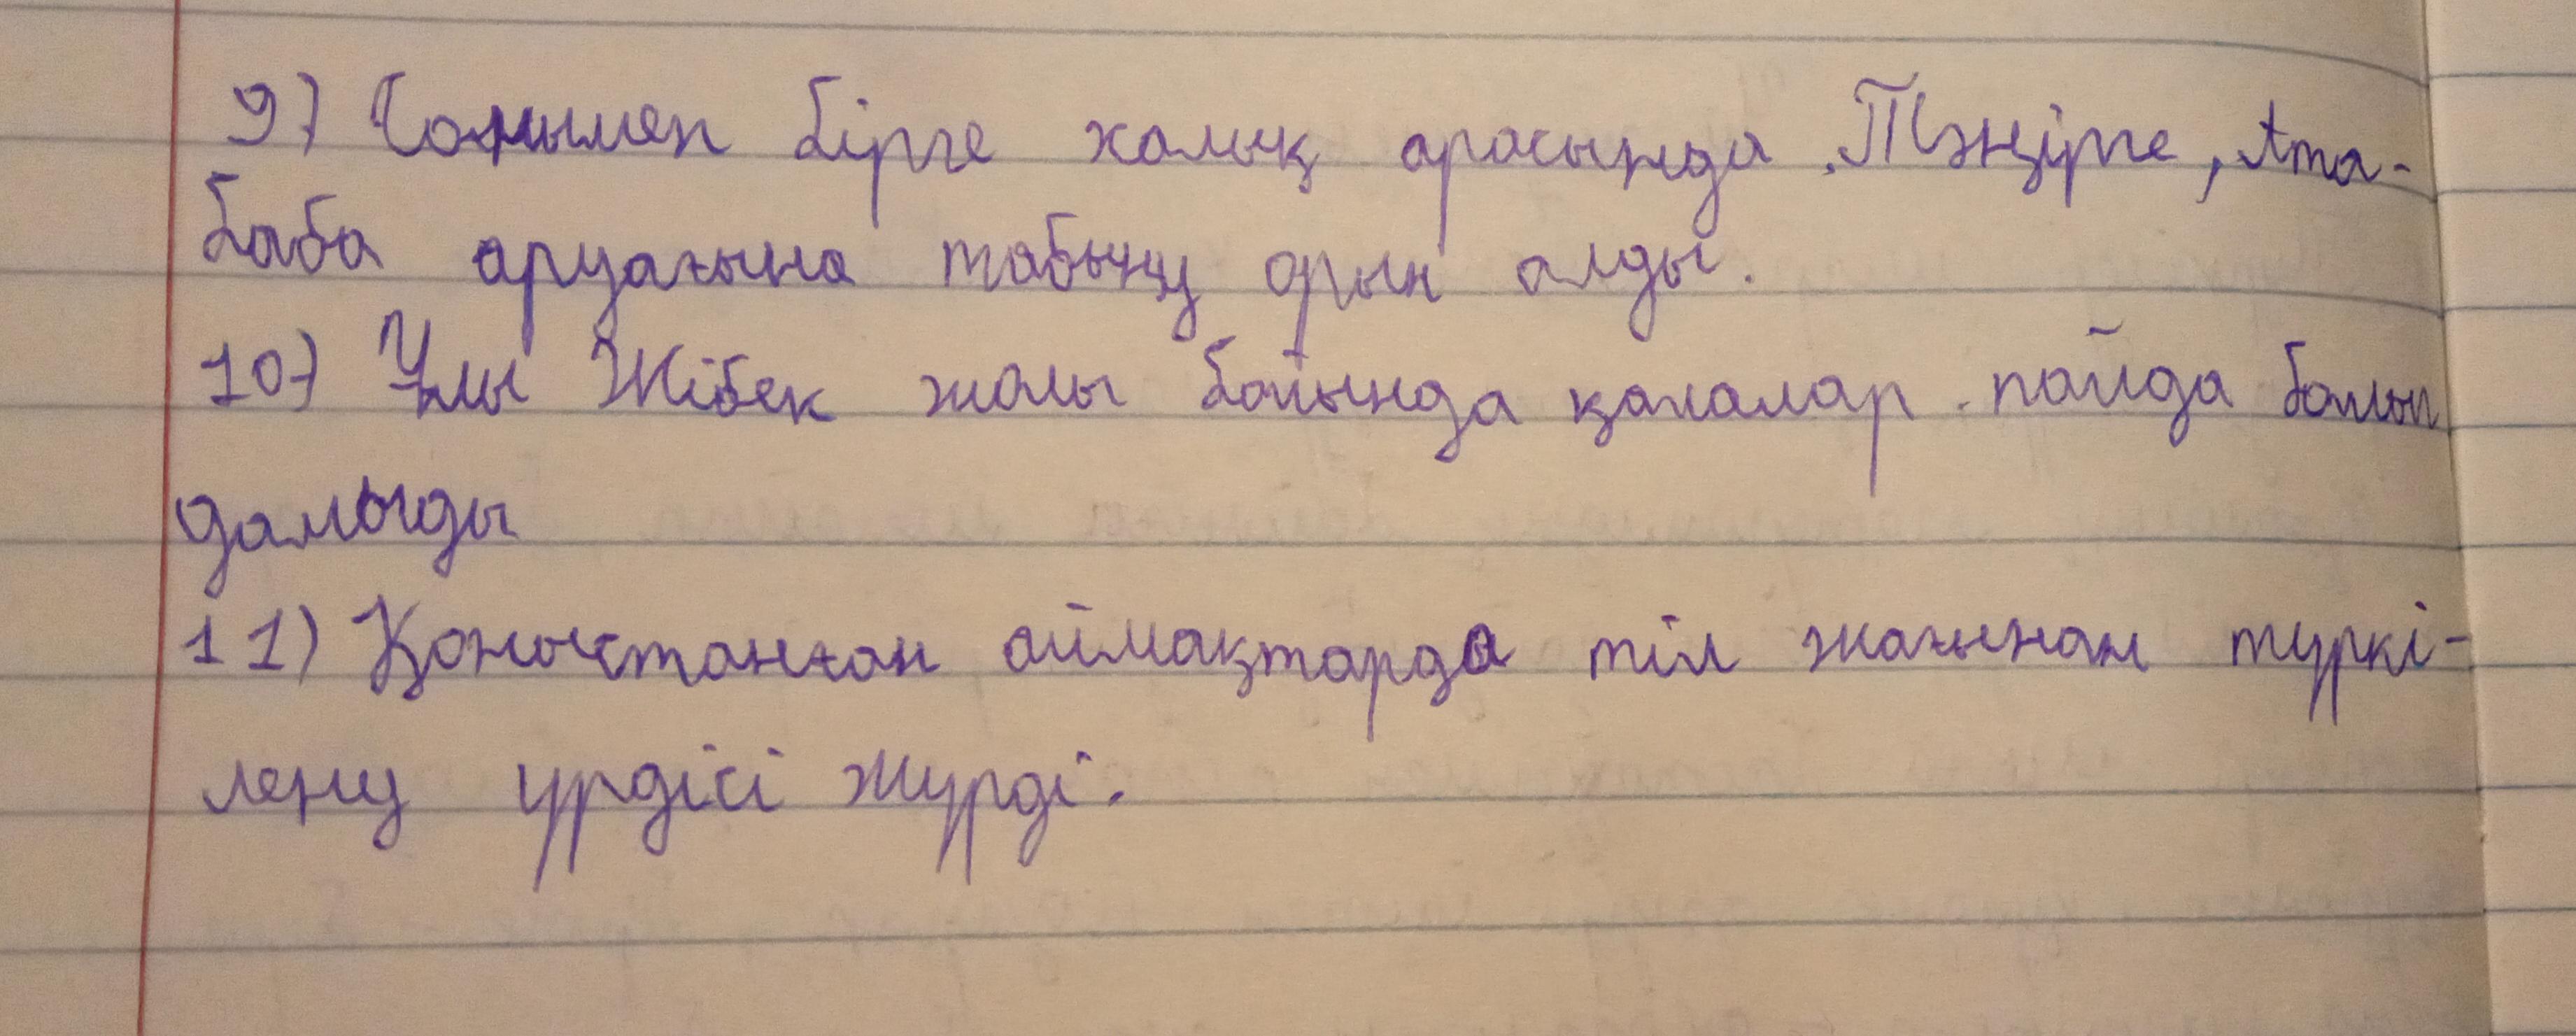 9) Сонымен бірге халық арасында Тәңірге, Ата-
баба аруағына табыну орын алды.
10) Ұлы Жібек жолы бойында қалалар пайда болып
дамыды
11) Қоныстанған аймақтарда тіл жағынан түркі-
лену үрдісі жүрді.